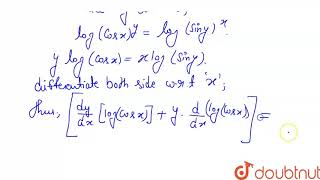 log (cosx)^y = log (siny)^x.
y log (cosx) = x log (siny).
differentiate both side w.r.t 'x';
Thus, [dy/dx [log(cosx)] + y. d/dx (log(cosx))] =
doubtnut